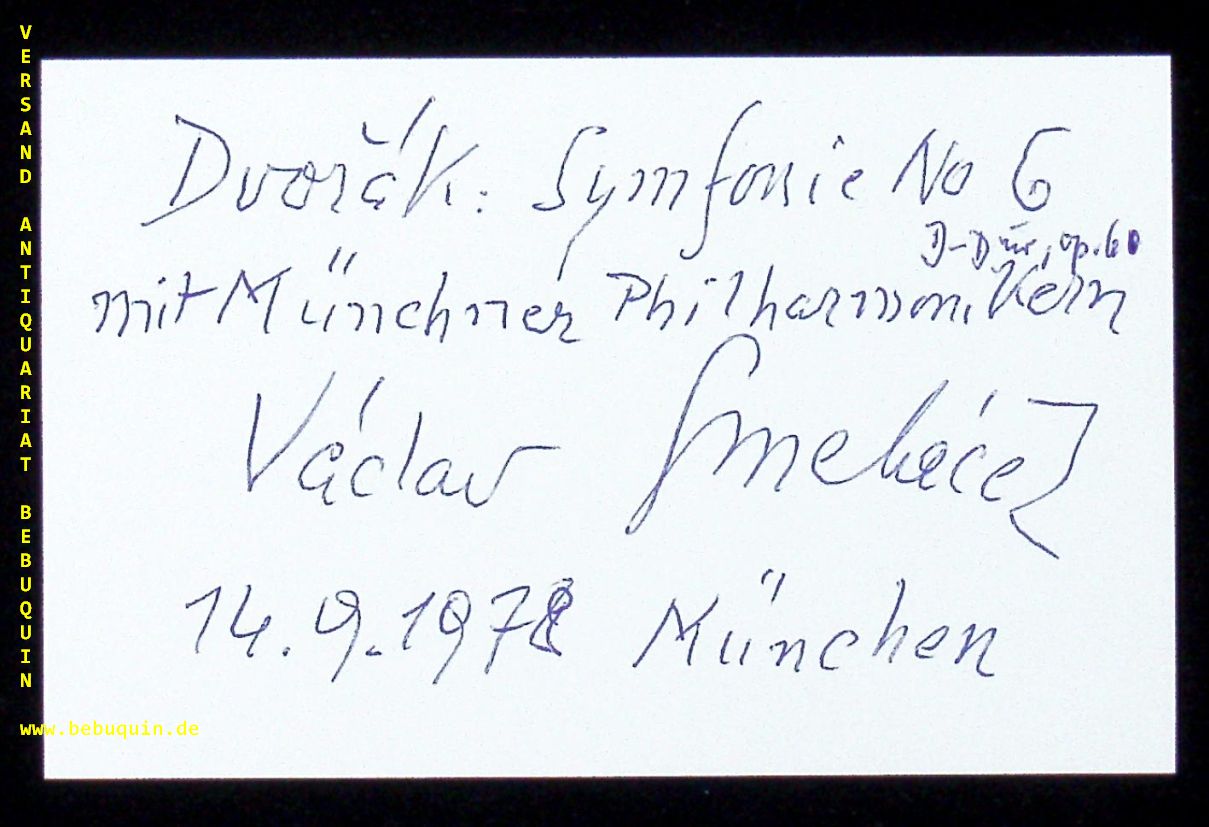 VERSAND ANTIQUARIAT BEBUQUIN
Dvořák: Symfonie No 6
D-Dur, op. 60
mit Münchner Philharmonikern
Václav Smetáček
14.9.1978 München
www.bebuquin.de